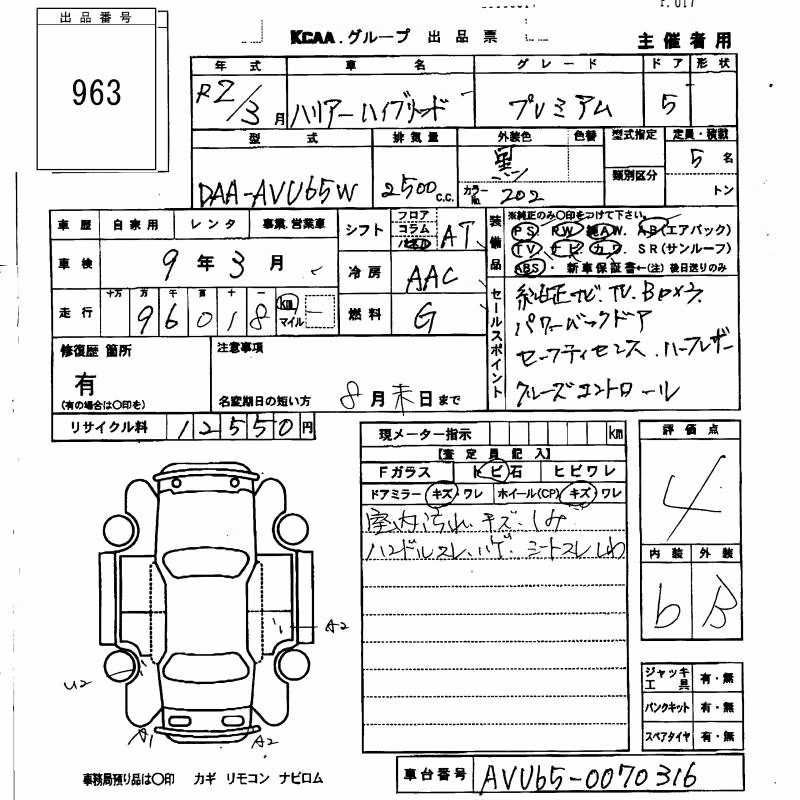 出品番号
963
KCAA.グループ 出品票
主催者用
年式 車名 グレード ドア 形状
R2/3月 ハリアーハイブリッド プレミアム 5
型式 排気量 外装色 色替 型式指定 定員・積載
DAA-AVU65W 2500 c.c. 黒 カラーNo. 202 類別区分 5名
トン
車歴 自家用 レンタ 事業.営業車
シフト フロア コラム AT
車検 9年3月
冷房 AAC
走行 十万 万 千 百 十 一
96018 km マイル
燃料 G
装備品 ※純正のみ〇印をつけて下さい。
PS RW AW. AB(エアバック)
TV ナビ カワ SR(サンルーフ)
ABS・新車保証書←(注)後日送りのみ
セールスポイント
純正ナビ.TV.Bカメラ
パワーバックドア
セーフティセンス.ハーフレザー
クルーズコントロール
修復歴 箇所
有
(有の場合は〇印を)
注意事項
名変期日の短い方 8月末日まで
リサイクル料 12550円
現メーター指示 km
【査定員記入】
Fガラス トビ石 ヒビワレ
ドアミラー キズ・ワレ ホイール(CP) キズ・ワレ
室内汚れ.キズ.しみ
ハンドルスレ.ハゲ.シートスレしわ
評価点
4
内装 外装
b B
ジャッキ工具 有・無
パンクキット 有・無
スペアタイヤ 有・無
A2
U2
A1
A2
事務局預り品は〇印 カギ リモコン ナビロム
車台番号 AVU65-0070316